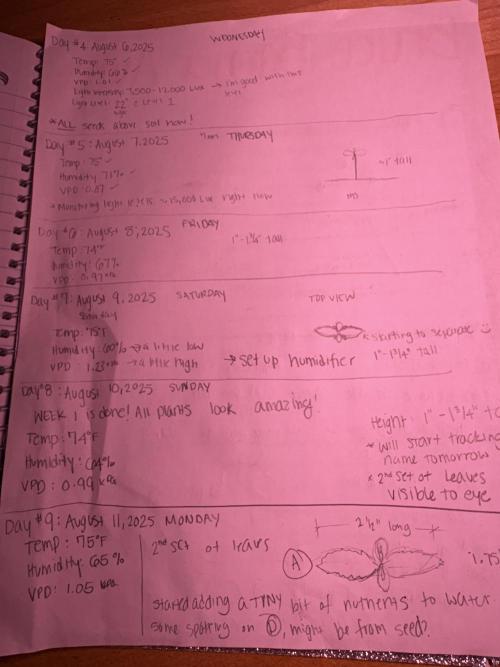 Day #4: August 6, 2025 WEDNESDAY
Temp: 75° ✓
Humidity: 66% ✓
VPD: 1.01 ✓
Light Intensity: 7,500-12,000 Lux → I'm good with this level
Light Level: 22" @ Level 1
* ALL seeds above soil now!
Day #5: August 7, 2025 THURSDAY
Temp: 75° ✓
Humidity: 71% ✓
VPD: 0.87 ✓
~1" tall
* Monitoring light levels. ~15,000 Lux right now
Day #6: August 8, 2025 FRIDAY
Temp: 74°F
Humidity: 67%
VPD: 0.97 kPa
1"-1¾" tall
Day #7: August 9, 2025 SATURDAY
TOP VIEW
Temp: 75°F
Humidity: 60% → a little low
VPD: 1.23 kPa → a little high
→ set up humidifier
* starting to separate
1"-1¾" tall
Day #8: August 10, 2025 SUNDAY
WEEK 1 is done! All plants look amazing!
Temp: 74°F
Humidity: 64%
VPD: 0.99 kPa
Height: 1"-1¾" to
* will start tracking
name tomorrow
* 2nd set of leaves
visible to eye
Day #9: August 11, 2025 MONDAY
Temp: 75°F
Humidity: 65%
VPD: 1.05 kPa
2nd set of leaves
2½" long
A
1.75"
started adding a TINY bit of nutrients to water.
some spotting on D, might be from seed?